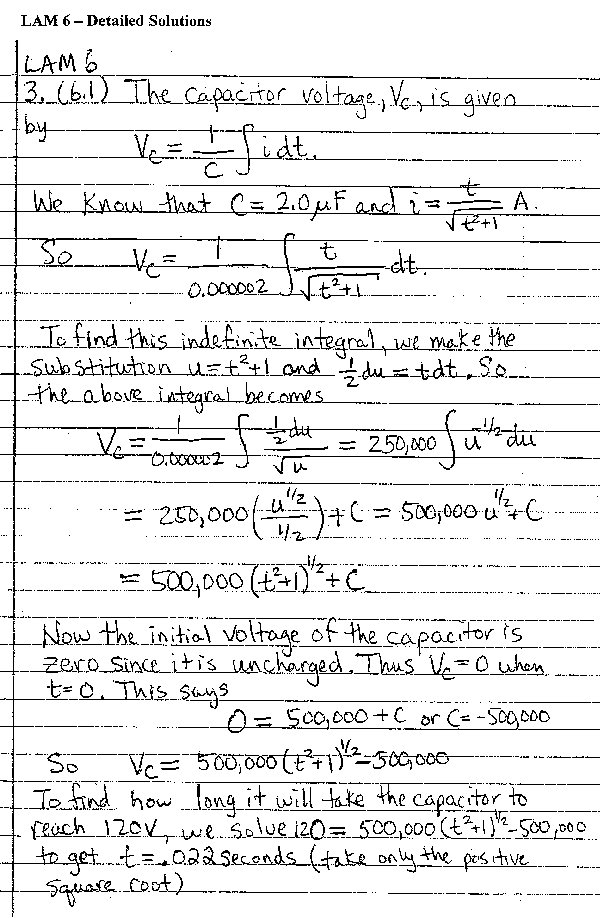 LAM 6 – Detailed Solutions
LAM 6
3. (6.1) The capacitor voltage, Vc, is given
by
Vc = 1/C ∫ i dt.
We know that C = 2.0 μF and i = t/√(t²+1) A.
So Vc = 1/0.000002 ∫ t/√(t²+1) dt.
To find this indefinite integral, we make the
substitution u = t²+1 and ½ du = t dt. So
the above integral becomes
Vc = 1/0.000002 ∫ ½ du/√u = 250,000 ∫ u^(-1/2) du
= 250,000 (u^(1/2)/(1/2)) + C = 500,000 u^(1/2) + C
= 500,000 (t²+1)^(1/2) + C
Now the initial voltage of the capacitor is
zero since it is uncharged. Thus Vc = 0 when
t = 0. This says
0 = 500,000 + C or C = -500,000
So Vc = 500,000 (t²+1)^(1/2) - 500,000
To find how long it will take the capacitor to
reach 120V, we solve 120 = 500,000 (t²+1)^(1/2) - 500,000
to get t = .022 seconds (take only the positive
square root)